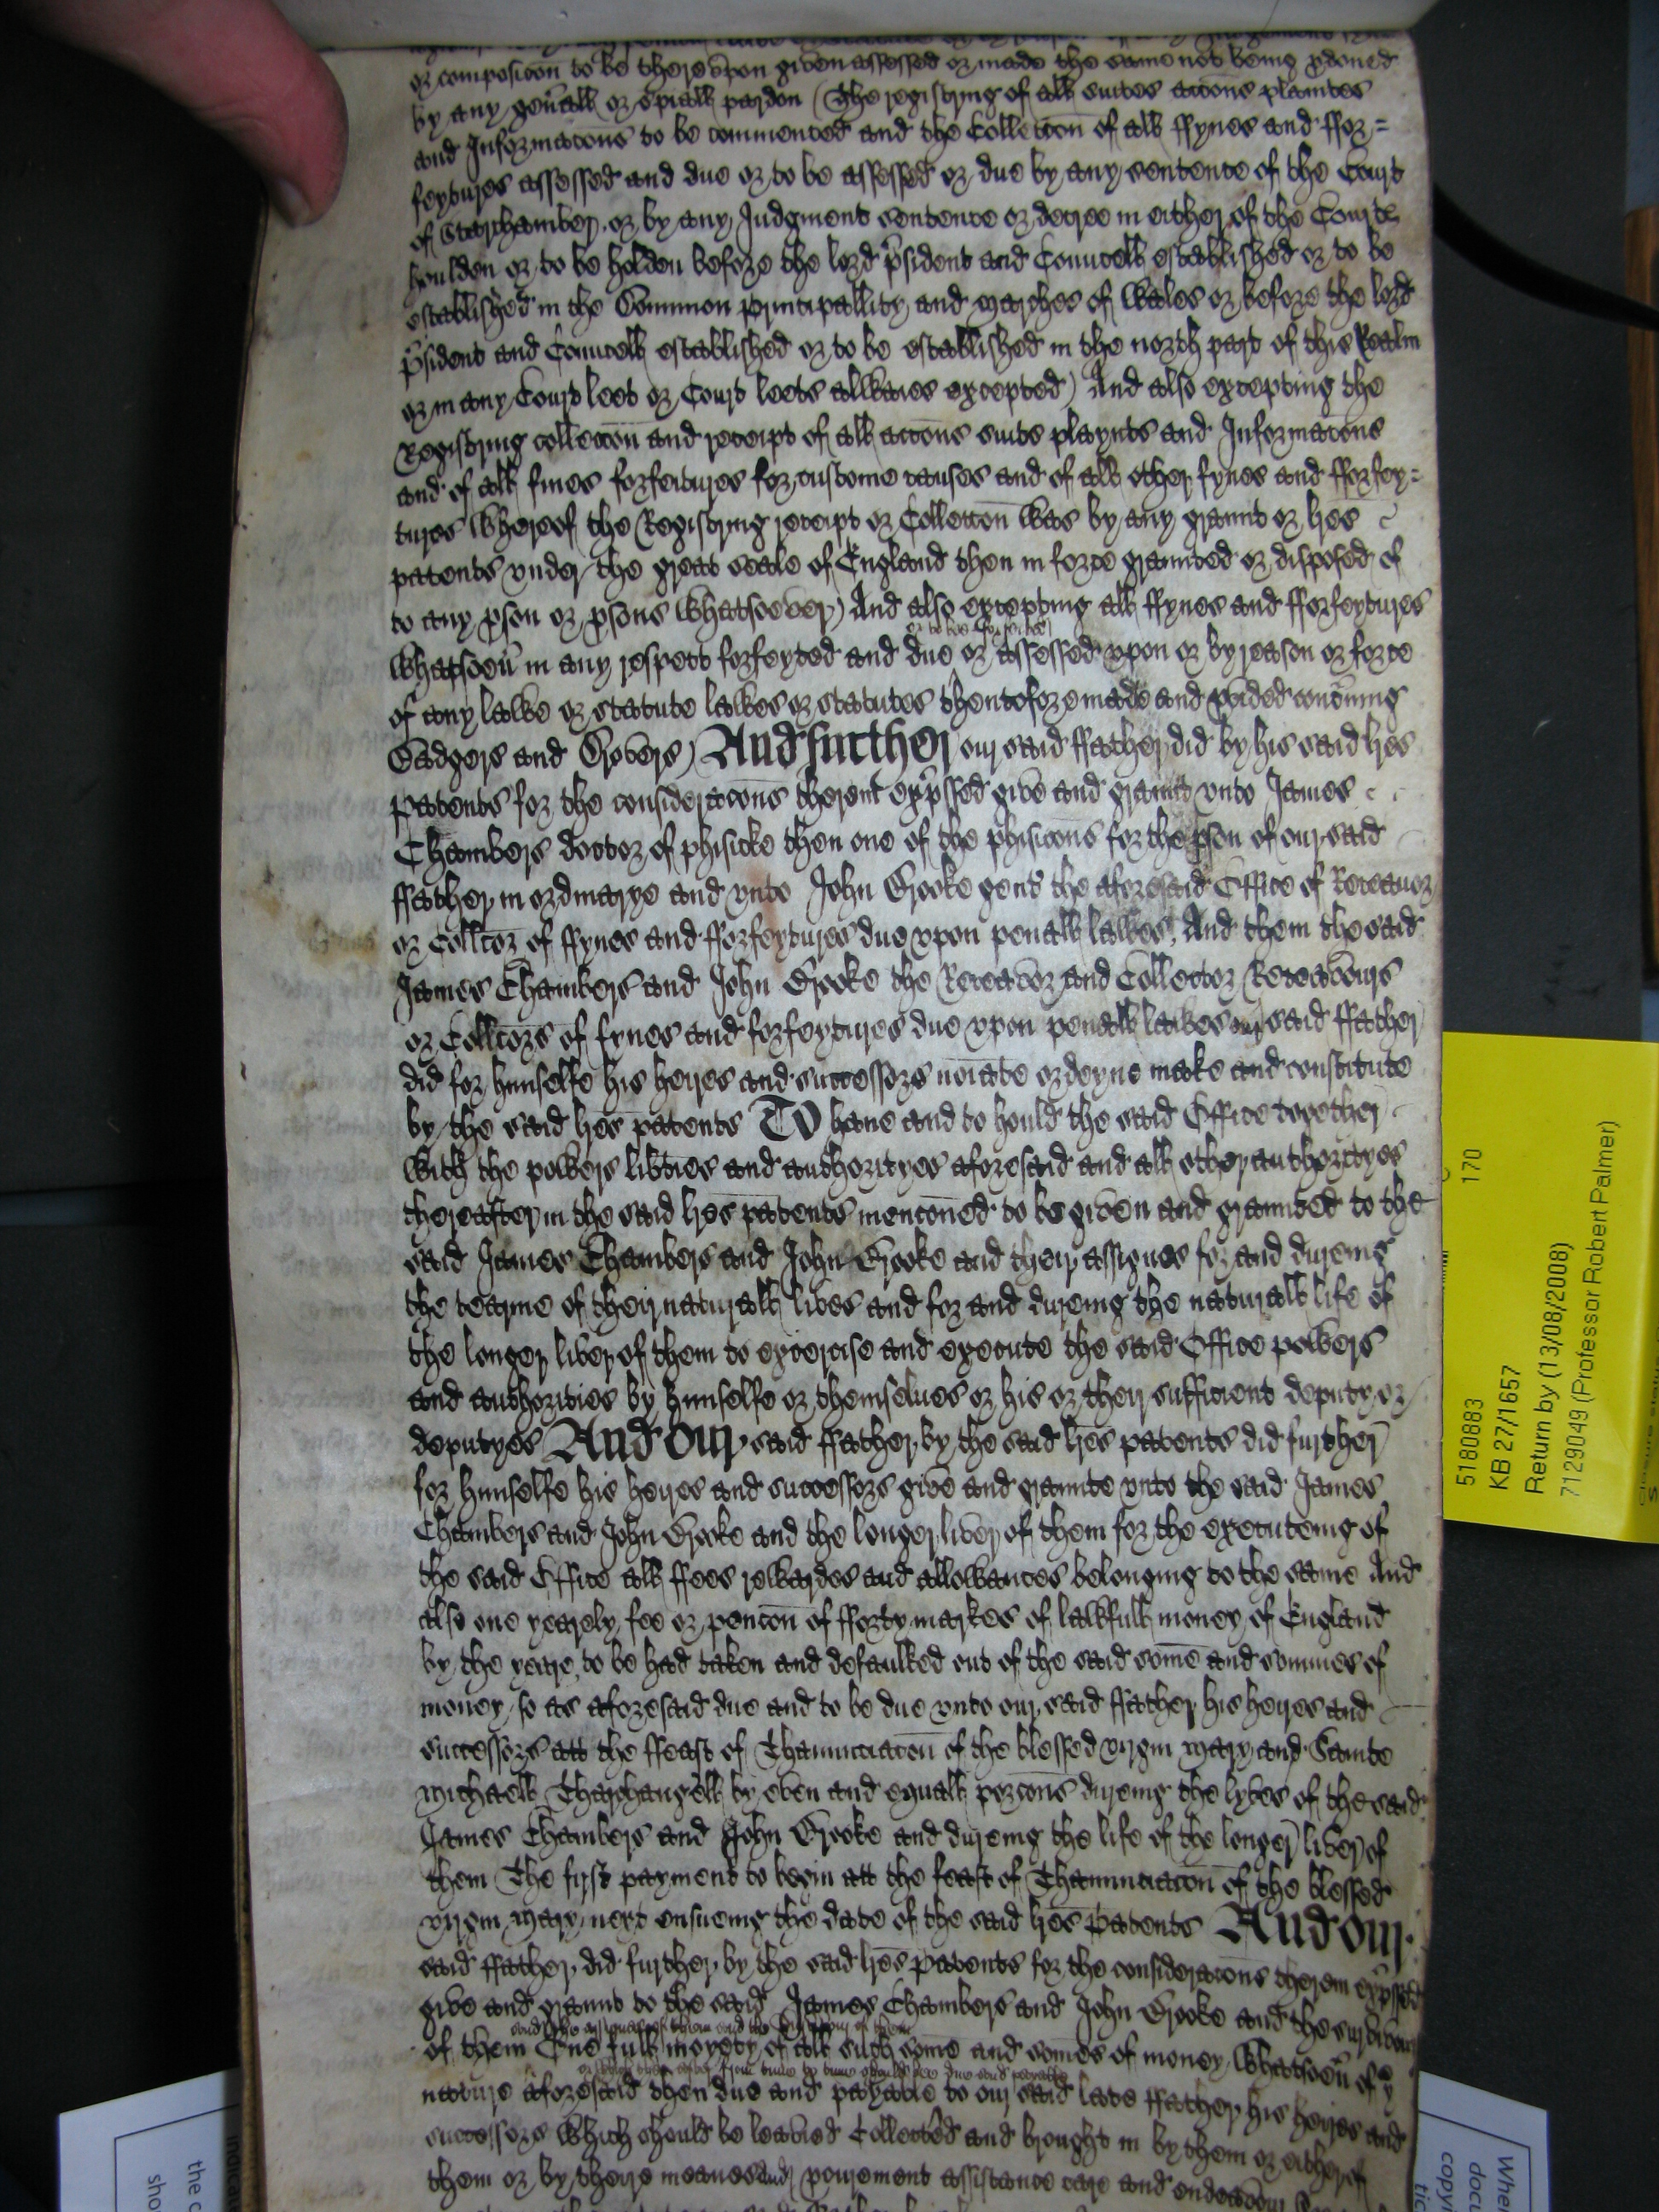 or composicon to be thereupon given assessed or made the same not being pdoned
by any genall or spiall pardon (The registring of all suites accons plaintes
and Informacons to be commenced and the Colleccon of all ffynes and ffor=
feytures assessed and due or to be assessed or due by any sentence of the Court
of Starchamber or by any Judgment sentence or decree in either of the Courtes
houlden or to be holden before the lord psident and Councell established or to be
established in the Common principallity and marches of Wales or before the lord
psident and Councell established or to be established in the north part of this Realm
or in any Court leet or Court leets allwaies excepted) And also excepting the
Registring colleccon and receipt of all accons suits playnts and Informacons
and of all fines forfeitures for custome causes and of all other fynes and fforfey=
tures whereof the Registring receipt or Colleccon was by any graunt or lres
patents under the great seale of England then in force graunted or disposed of
to any pson or psons whatsoever) And also excepting all ffynes and fforfeytures
or to bee forfeited
whatsoeu in any respect forfeyted and due or assessed upon or by reason or force
of any lawe or statute lawes or statutes thentofore made and pvided concning
Badgers and Drovers) And further our said ffather did by his said lres
Patents for the consideracons therein expssed give and graunt vnto James
Chambers doctor of phisicke then one of the phisicons for the pson of our said
ffather in ordinarye and vnto John Brooke gent the aforesaid Office of Receavor
or Collcor of ffynes and fforfeytures due vpon penall lawes, And them the said
James Chambers and John Brooke the Receavor and Collector Receavours
or Collcors of fynes and forfeytures due vpon penall lawes our said ffather
did for himselfe his heires and successors noiate ordeyne make and constitute
by the said lres patents To haue and to hould the said Office together
with the powers libties and authorityes aforesaid and all other authorityes
thereafter in the said lres patents menconed to be given and graunted to the
said James Chambers and John Brooke and their assignes for and dureing
the tearme of their naturall lives and for and dureing the naturall life of
the longer liver of them to exercise and execute the said Office powers
and authorities by himselfe or themselues or his or their sufficient deputy or
deputyes And our said ffather by the said lres patents did further
for himselfe his heires and successors give and graunte vnto the said James
Chambers and John Brooke and the longer liver of them for the executeing of
the said Office all ffees rewardes and allowances belonging to the same And
also one yearely fee or pencon of fforty markes of lawfull money of England
by the yeare to be had taken and defaulked out of the said some and sommes of
money so as aforesaid due and to be due vnto our said ffather his heires and
successors att the ffeast of Thannuciacon of the blessed virgin mary and Sainte
Michaell Tharchangell by even and equall porcons dureing the lyves of the said
James Chambers and John Brooke and dureing the life of the longer liver of
them The first payment to begin att the feast of Thannuciacon of the blessed
virgin mary next ensueing the date of the said lres Patents And our
said ffather did further by the said lres Patents for the consideracons therein expssed
give and graunt to the said James Chambers and John Brooke and the survivour
and the assignes of them and the survivour of them
of them One full moyety of all such some and somes of money whatsoeu of y
or which then after from time to time should bee due and payable
nature aforesaid then due and payable to our said late ffather his heires and
successors which should be leavied Collected and brought in by them or either of
them or by theire meanes and pcurement assistance care and endeavour